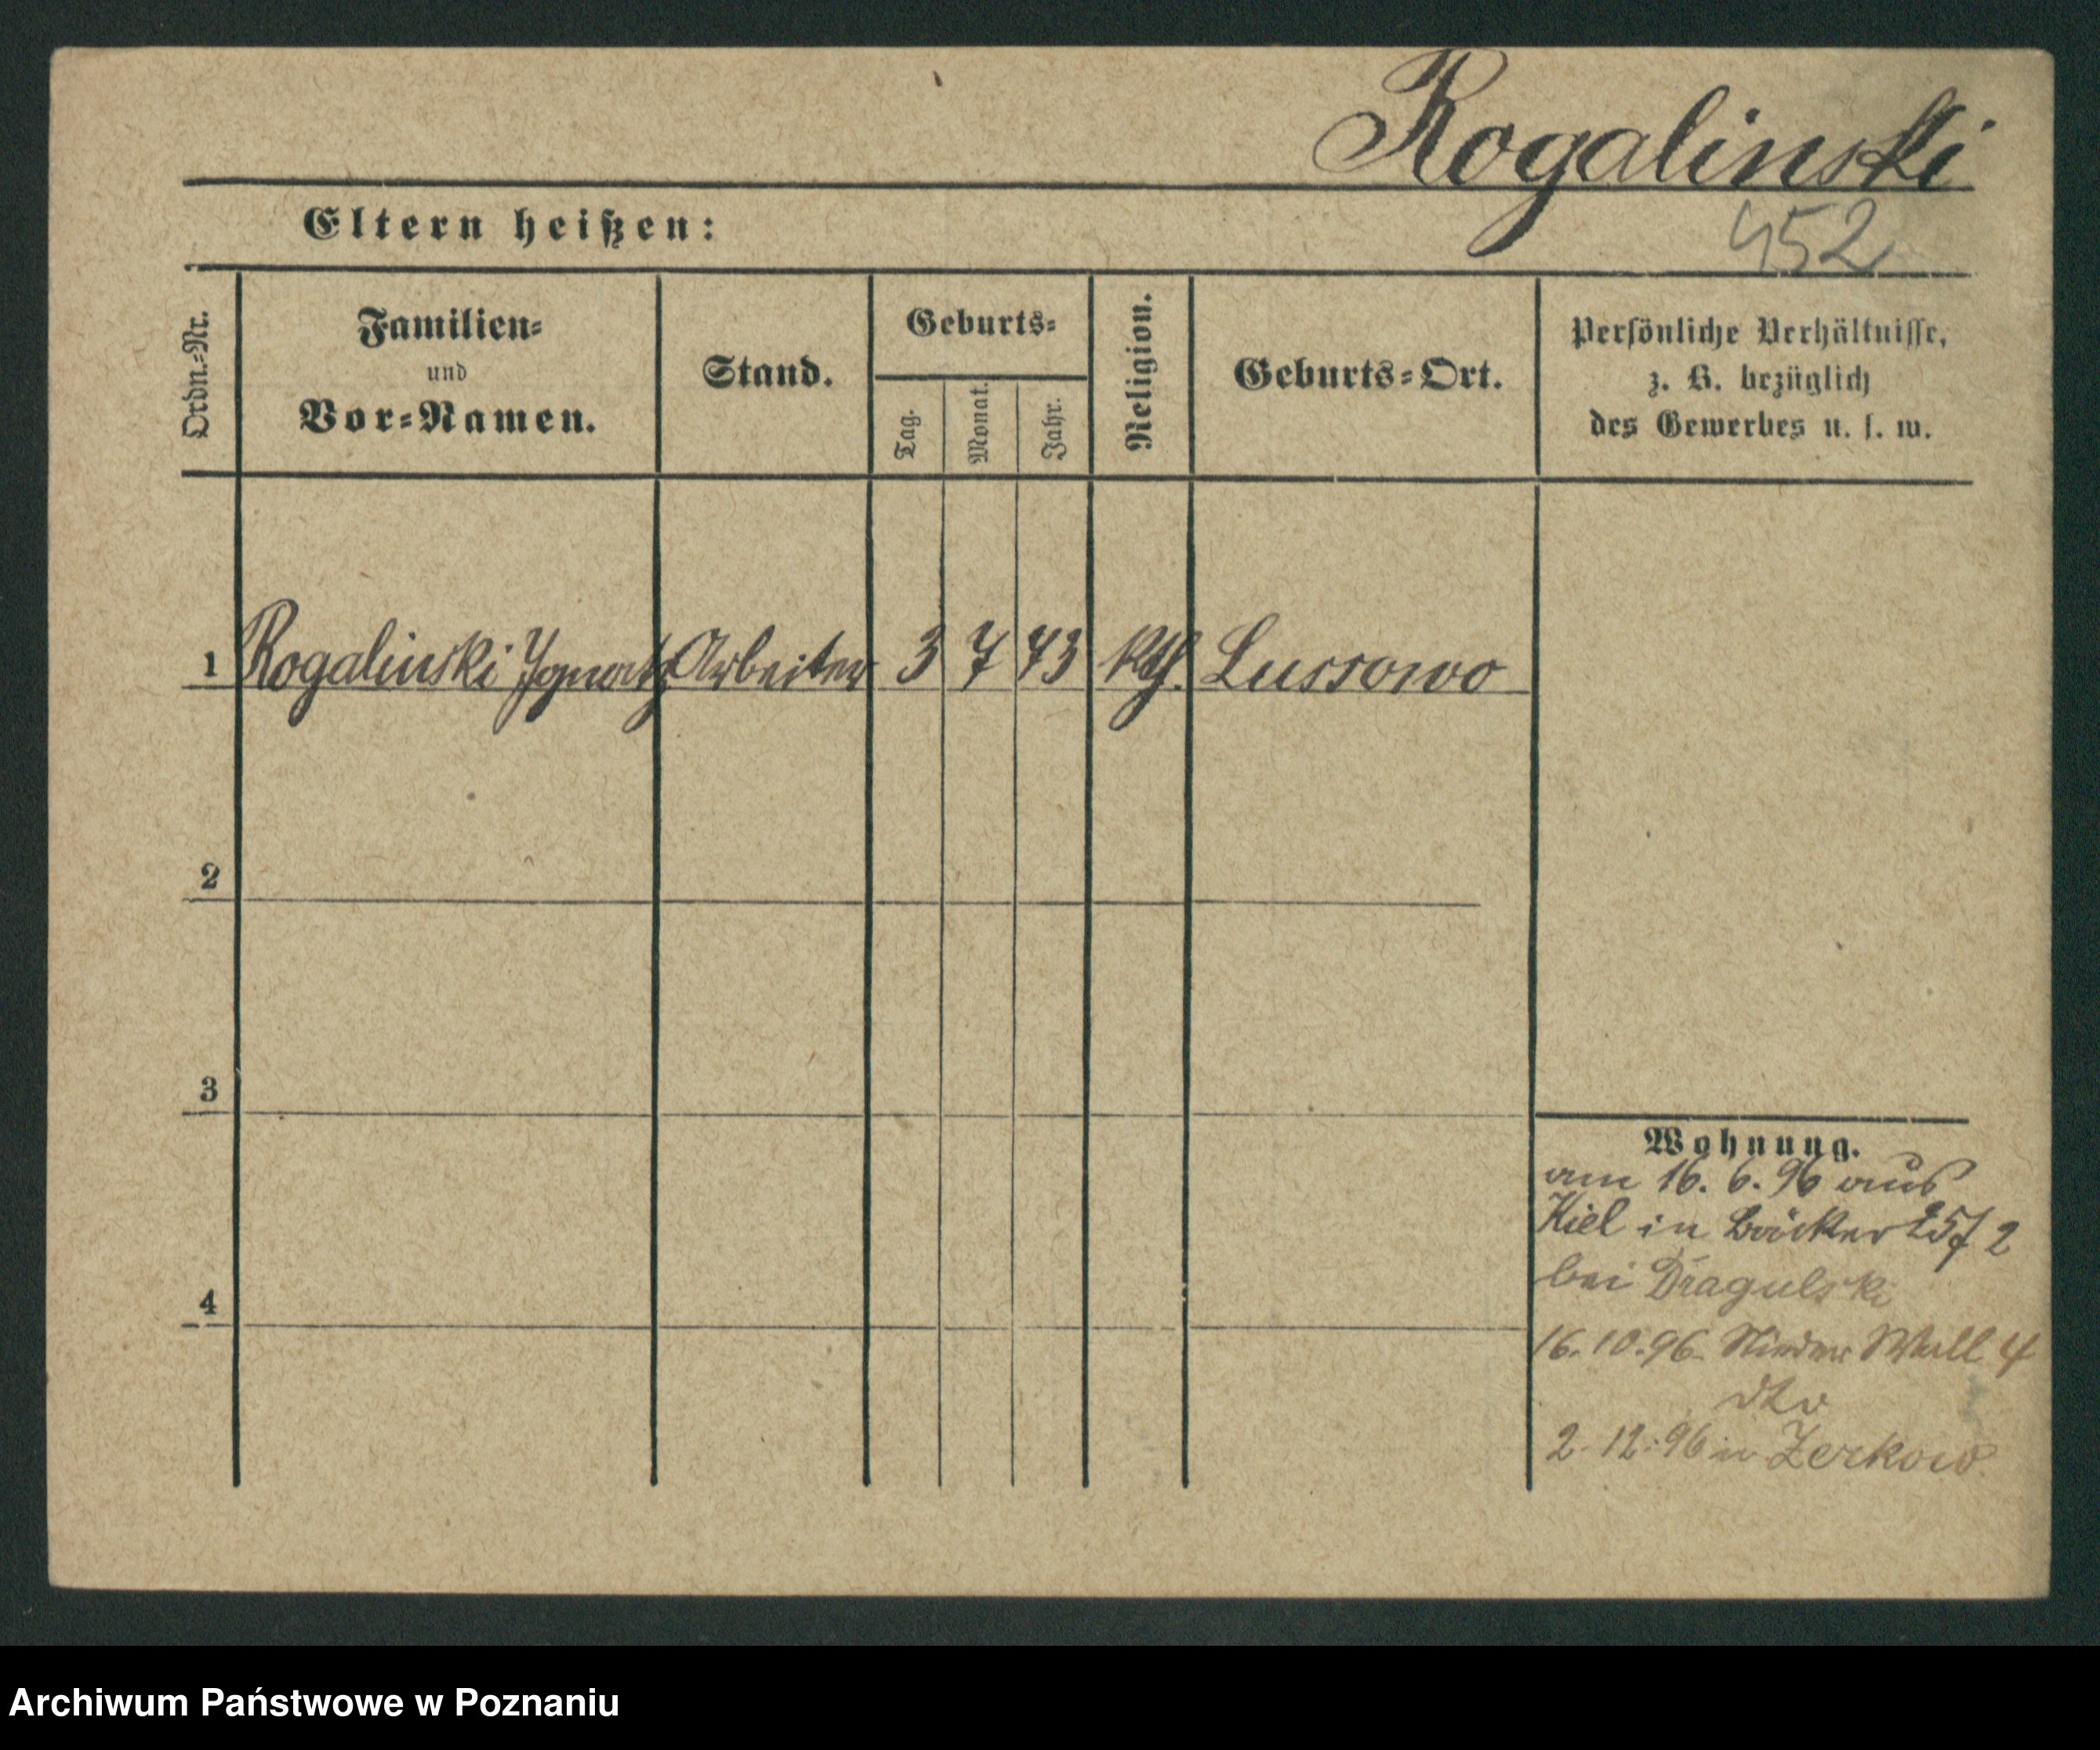 Rogalinski
452
Eltern heißen:
Ordn.-Nr.
Familien-
und
Vor-Namen.
Stand.
Geburts-
Tag.
Monat.
Jahr.
Religion.
Geburts-Ort.
Persönliche Verhältnisse,
z. B. bezüglich
des Gewerbes u. s. w.
1 Rogalinski Ignatz Arbeiter 3 7 73 kth. Lussowo
2
3
4
Wohnung.
am 16. 6. 96 aus
Kiel in Bäcker 25/2
bei Dragulski
16. 10. 96. Nieder Wall 4
dto
2. 12. 96 in Zerkow.
Archiwum Państwowe w Poznaniu